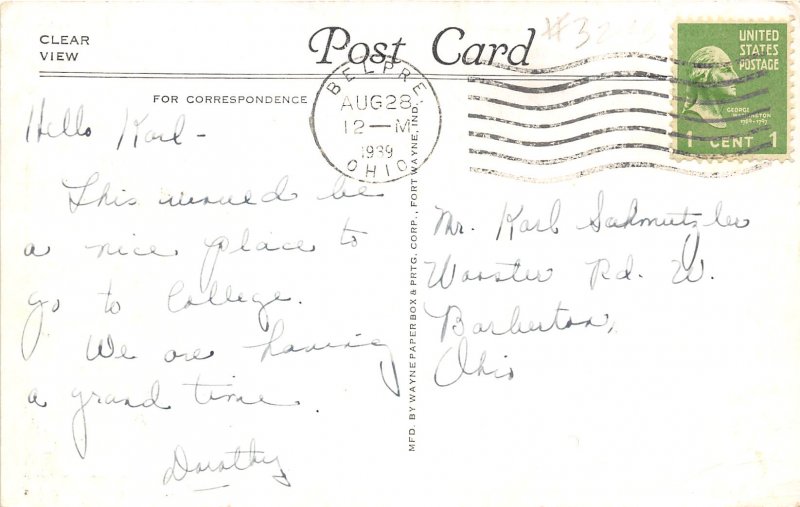 CLEAR
VIEW
Post Card
FOR CORRESPONDENCE
BELPRE
AUG 28
12 — M
1939
OHIO
UNITED
STATES
POSTAGE
GEORGE
WASHINGTON
1789-1797
1 CENT 1
Hello Karl -
This would be
a nice place to
go to College.
We are having
a grand time.
Dorothy
MFD. BY WAYNE PAPER BOX & PRTG. CORP., FORT WAYNE, IND.
Mr. Karl Schmutzler
Wooster Rd. W.
Barberton,
Ohio